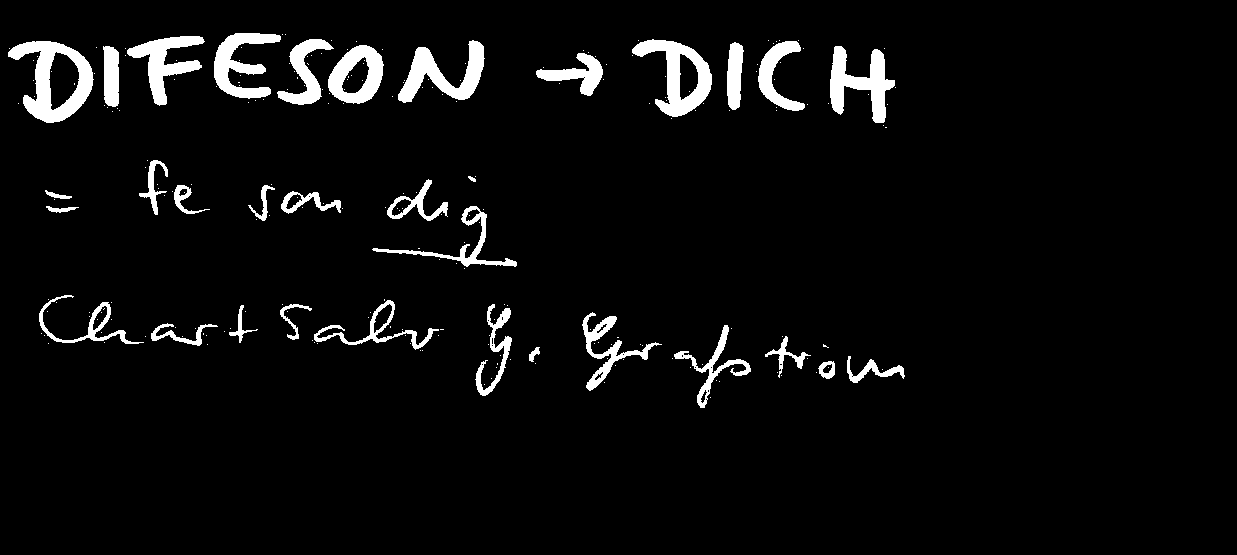 DIFESON → DICH
= fe son dig
Chart Salv G. Grafström